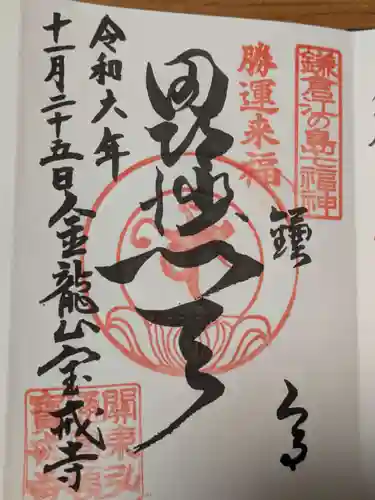 鎌倉江の島七福神
鎌倉
勝運来福
毘沙門天
令和六年
十一月二十五日
金龍山宝戒寺